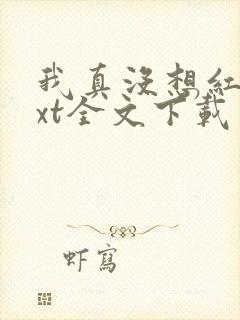 我真没想红
xt全文下载
虾写